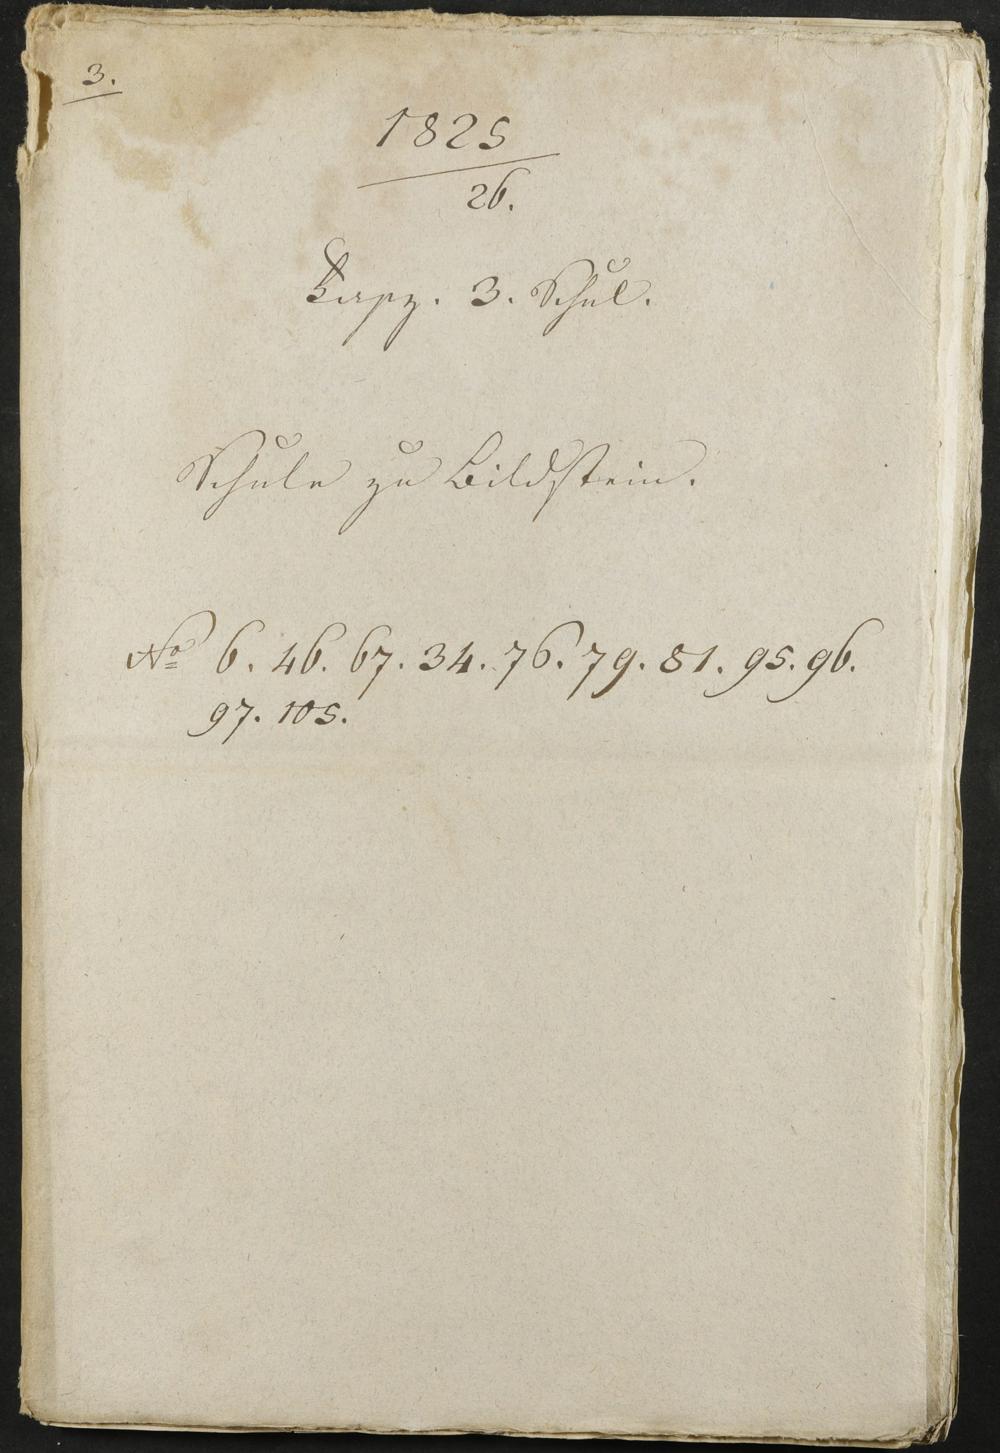 3.
1825
26.
3. Schul.
Schule zu Bildstein.
No 6. 46. 67. 34. 76. 79. 81. 95. 96.
97. 105.